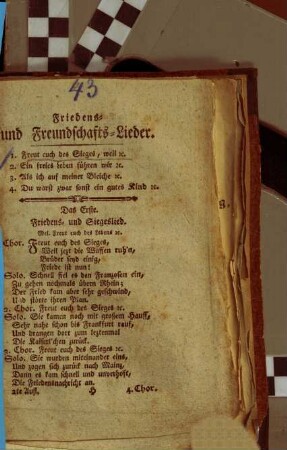 43
Friedens-
und Freundschafts-Lieder.
1. Freut euch des Sieges, weil ꝛc.
2. Ein freies Leben führen wir ꝛc.
3. Als ich auf meiner Bleiche ꝛc.
4. Du warst zwar sonst ein gutes Kind ꝛc.
Das Erste.
Friedens- und Siegeslied.
Mel. Freut euch des Lebens ꝛc.
Chor. Freut euch des Sieges,
Weil jezt die Waffen ruh'n,
Brüder seyd einig,
Friede ist nun!
Solo. Schnell fiel es den Franzosen ein,
Zu gehen nochmals übern Rhein;
Der Fried kam aber sehr geschwind,
Und störte ihren Plan.
2. Chor. Freut euch des Sieges ꝛc.
Solo. Sie kamen noch mit großem Hauff,
Sehr nahe schon bis Frankfurt rauf,
Und drangen dort zum leztenmal
Die Kaiserlichen zurück.
3. Chor. Freut euch des Sieges ꝛc.
Solo. Sie wurden miteinander eins,
Und zogen sich zurück nach Mainz,
Dann es kam schnell und unverhoft,
Die Friedensnachricht an.
2te Aufl. H 4. Chor.